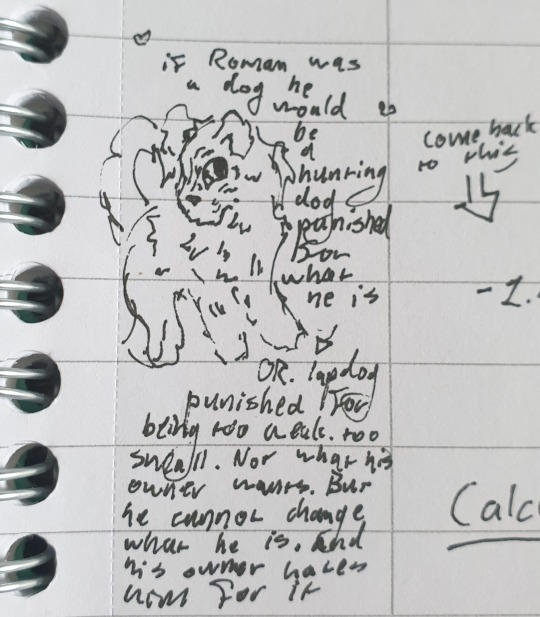 if Roman was
a dog he
would
be
a
hunting
dog
punished
for
what
he is
OR. lapdog
punished for
being too weak. too
small. Not what his
owner wants. But
he cannot change
what he is. And
his owner hates
him for it
come back
to this